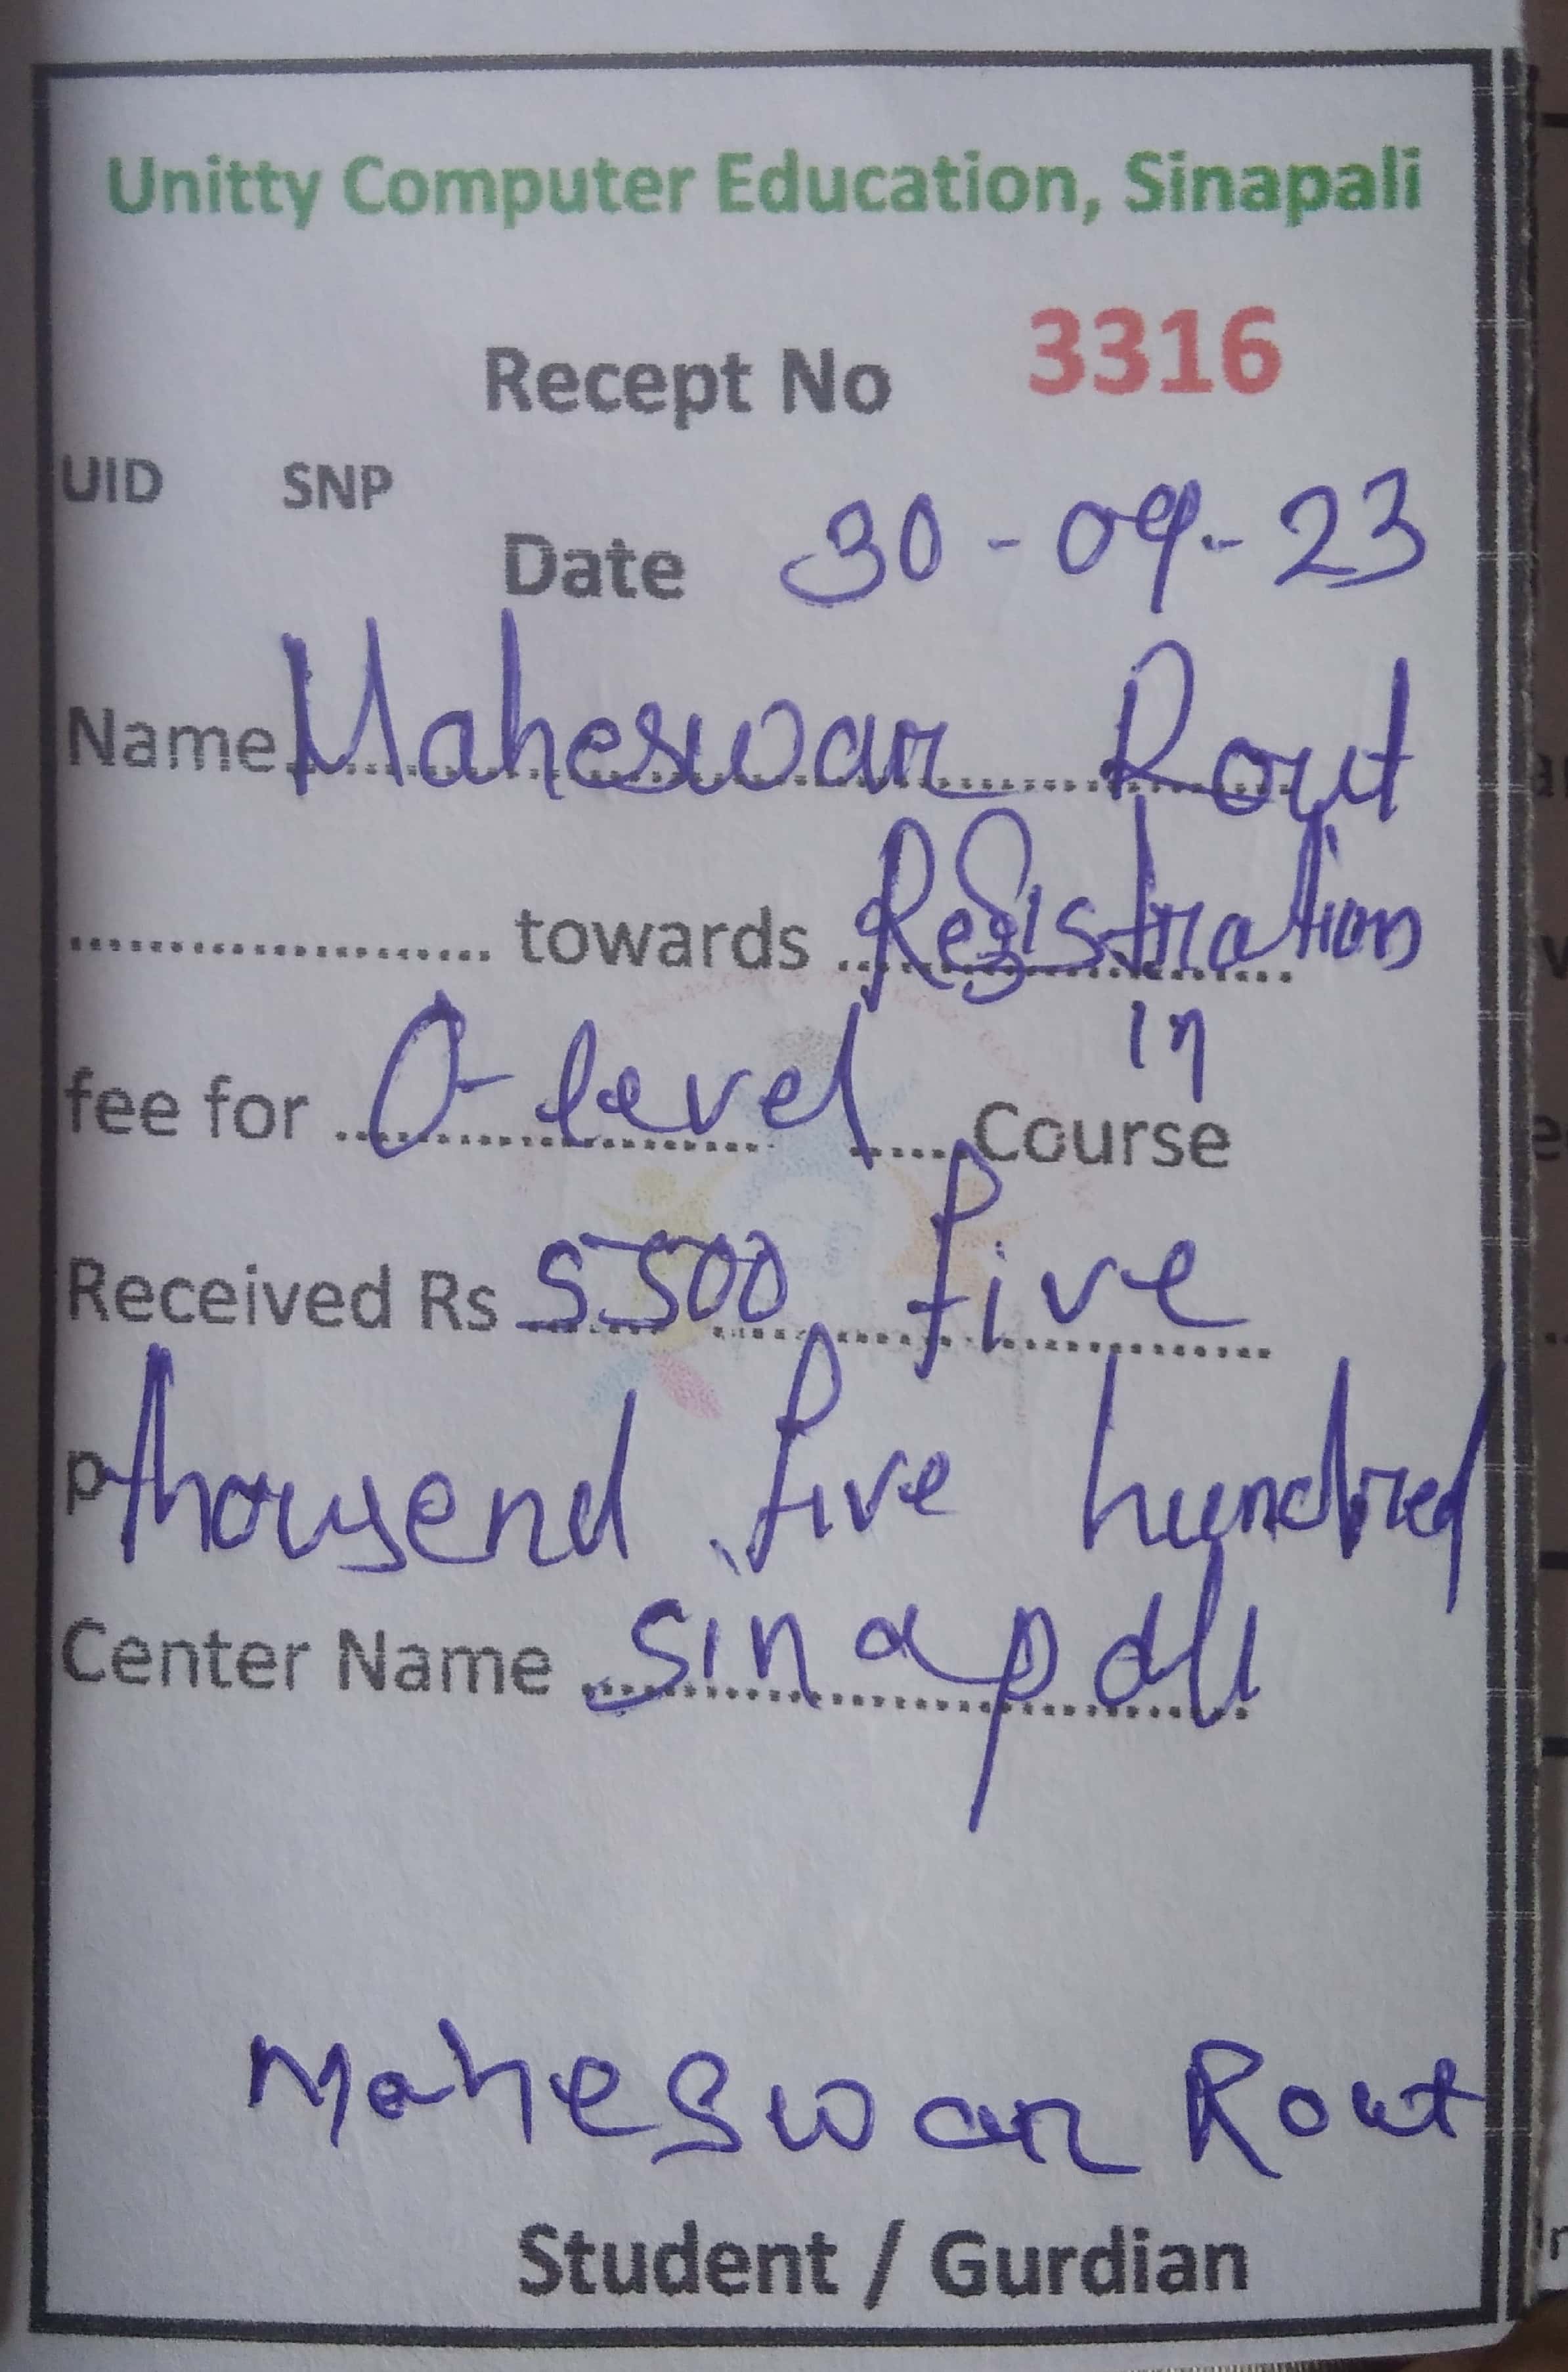 Unitty Computer Education, Sinapali
Recept No 3316
UID SNP
Date 30-09-23
Name Maheswar Rout
towards Registration
in
fee for O-level Course
Received Rs 5500 five
thousend five hundred
Center Name Sinapali
Maheswar Rout
Student / Gurdian